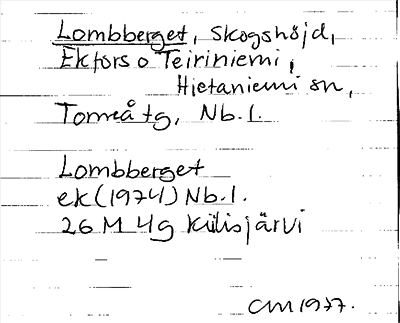 Lombberget, skogshöjd,
Ekfors o Teiriniemi,
Hietaniemi sn,
Torneå tg, Nb. l.
Lombberget
ek (1974) Nb. l.
26 M 4g Kilisjärvi
CM 1977.